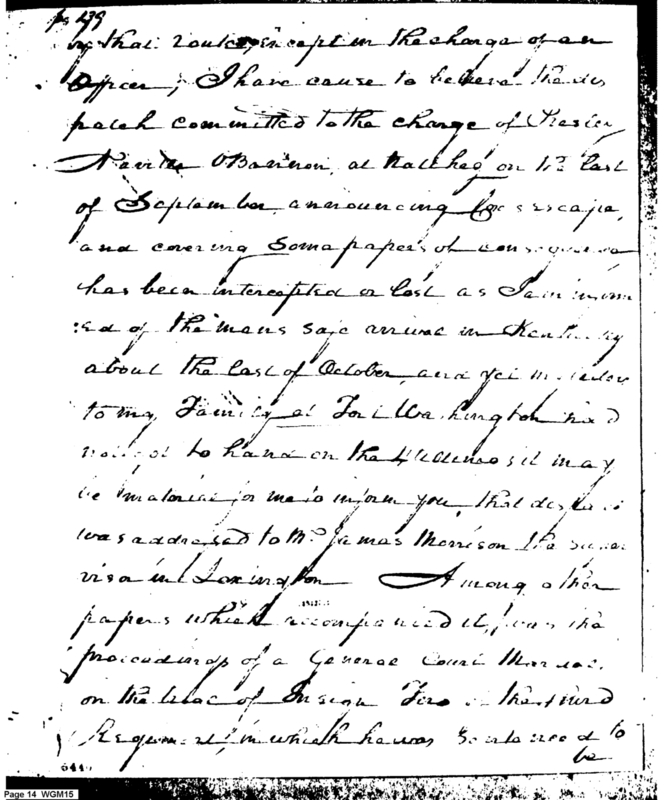 pg 239
by that route, except in the charge of an
Officer; I have cause to believe the des
patch committed to the charge of Presley
Neville O'Bannon, at Natchez on the last
of September, announcing escape,
and covering some papers of consequence
has been intercepted or lost as I am inform
:ed of the mans safe arrival in Kentucky
about the last of October, and yet my letters
to my Family at Fort Washington had
not got to hand on the 4th Ultimo it may
be material for me to inform you, that despatch
was addressed to Mr James Morrison the super
visor in Lexington Among other
papers which accompanied it, was the
proceedings of a General Court Martial
on the trial of Ensign of the third
Regiment, in which he was Sentenced to
be
644
Page 14 WGM15